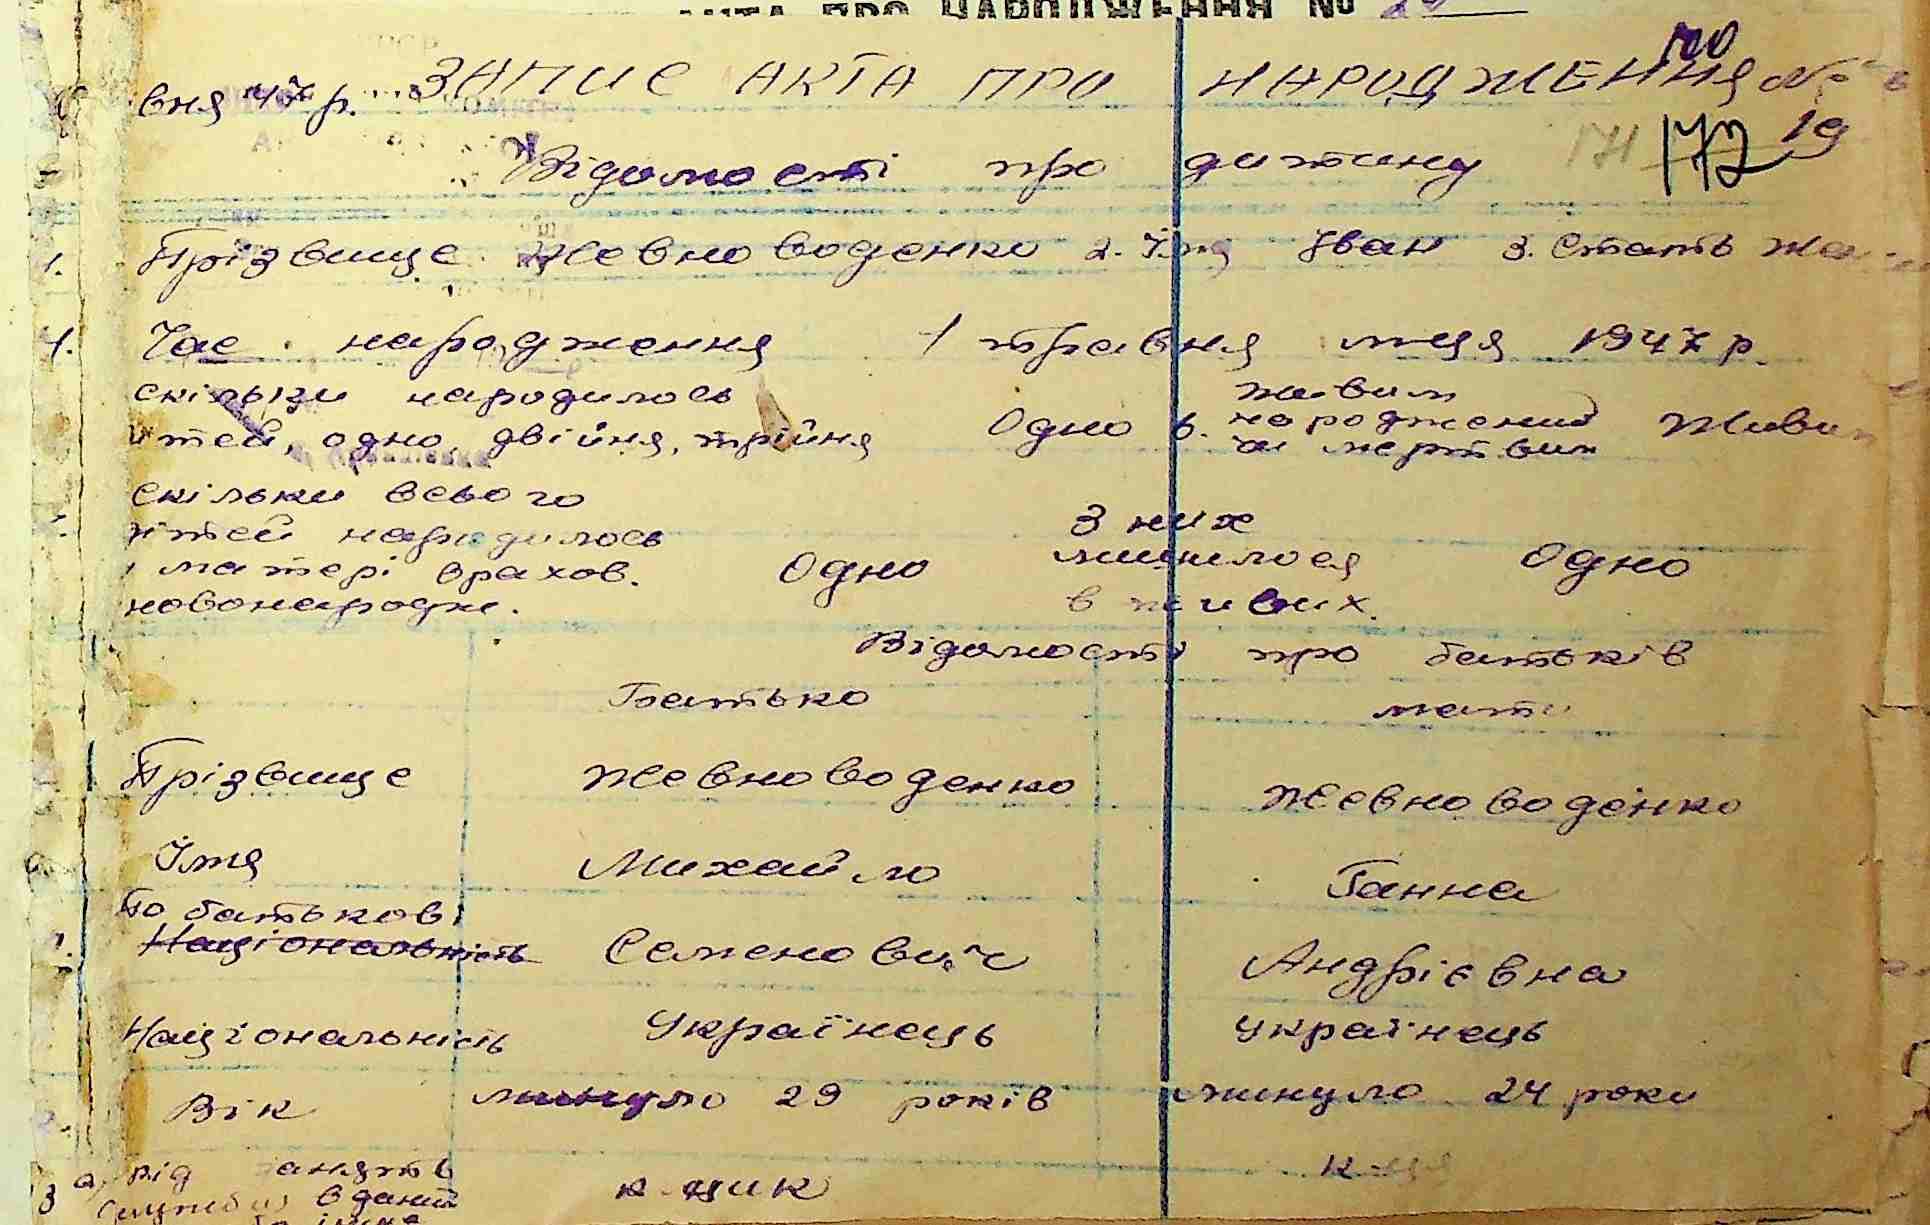 АКТА ПРО НАРОДЖЕННЯ №
100
ЗАПИС АКТА ПРО НАРОДЖЕННЯ №
вня 47 р.
171 172 19
Відомості про дитину
1. Прізвище Жевноводенко 2. Імя Іван 3. Стать
4. Час народження 1 травня м-ця 1947 р.
скільки народилось
ітей, одно, двійня, трійня Одно 6. живим народжений чи мертвим Живим
скільки всього
ітей народилось
матері врахов. Одно З них лишилося в живих Одно
новонародж.
Відомості про батьків
Батько мати
Прізвище Жевноводенко Жевноводенко
Імя Михайло Ганна
По батькові
Національність Семенович Андрієвна
Національність Українець українець
Вік минуло 29 років минуло 24 роки
а, від занять к-ник к-ця
в даний